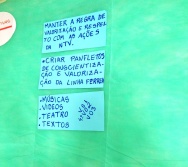 MANTER A REGRA DE
VALORIZAÇÃO E RESPEI
TO COM AS AÇÕES
DA NTV.
• CRIAR PANFLETOS
DE CONSCIENTIZA-
ÇÃO E VALORIZA-
ÇÃO DA LINHA FÉRREA
• MÚSICAS
• VIDEOS
• TEATRO
• TEXTOS